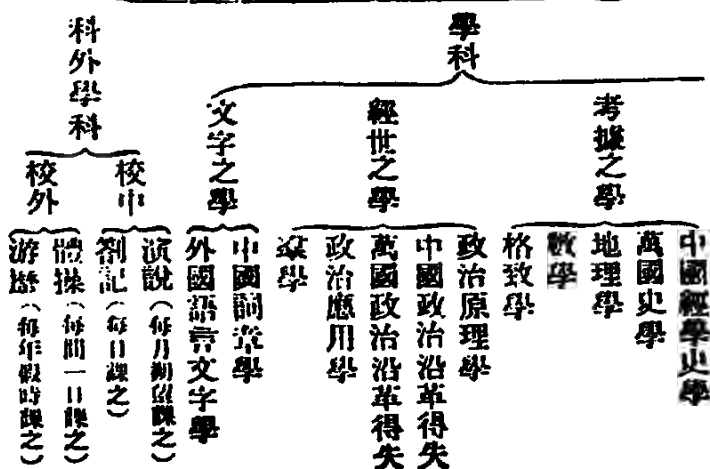 學科
考據之學
中國經學史學
萬國史學
地理學
數學
格致學
經世之學
政治原理學
中國政治沿革得失
萬國政治沿革得失
政治應用學
羣學
文字之學
中國詞章學
外國語言文字學
科外學科
校中
演說(每月朔望課之)
劄記(每日課之)
校外
體操(每間一日課之)
游歷(每年假時課之)